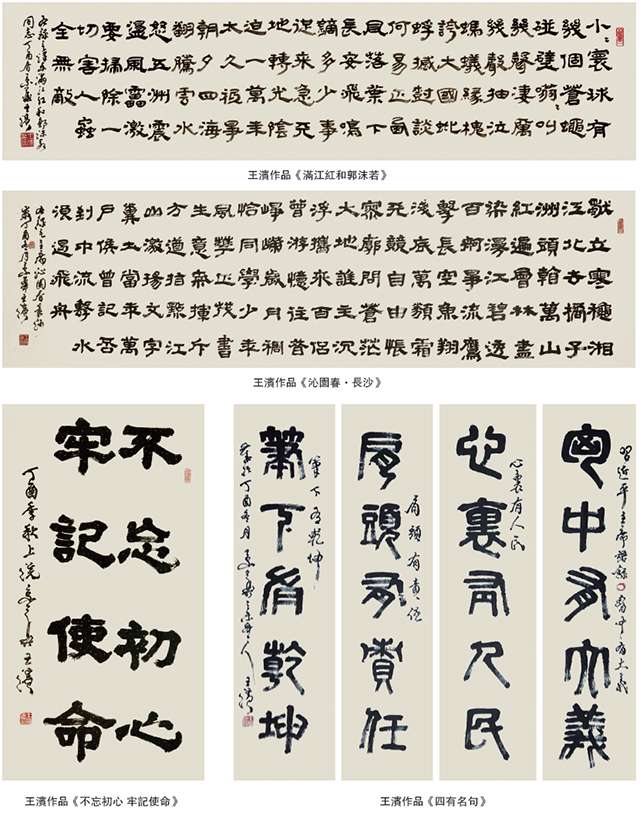 小〻寰球有
幾個蒼蠅
碰壁嗡〻叫
幾聲淒厲
幾聲抽泣
螞蟻緣槐
誇大國蚍
蜉撼樹談
何易正西
風落葉下
長安飛鳴
鏑多少事
從來急天
地轉光陰
迫一萬年
太久祗爭
朝夕四海
翻騰雲水
怒五洲震
盪風雷激
要掃除一
切害人蟲
全無敵
王濱作品《滿江紅和郭沫若》
獨立寒穐湘
江北去橘子
洲頭看萬山
紅遍層林盡
染漫江碧透
百舸爭流鷹
擊長空魚翔
淺底萬類霜
天競自由悵
寥廓問蒼茫
大地誰主沉
浮攜來百侶
曾游憶往昔
崢嶸歲月稠
恰同學少年
風華正茂書
生意氣揮斥
方遒指點江
山激揚文字
糞土當年萬
戶侯曾記否
到中流擊水
浪遏飛舟
王濱作品《沁園春·長沙》
不忘初心
牢記使命
丁酉季秋上浣
王濱作品《不忘初心 牢記使命》
胸中有大義
習近平主席語錄 胸中有大義
心裏有人民
心裏有人民
肩頭有責任
肩頭有責任
筆下有乾坤
筆下有乾坤
王濱作品《四有名句》